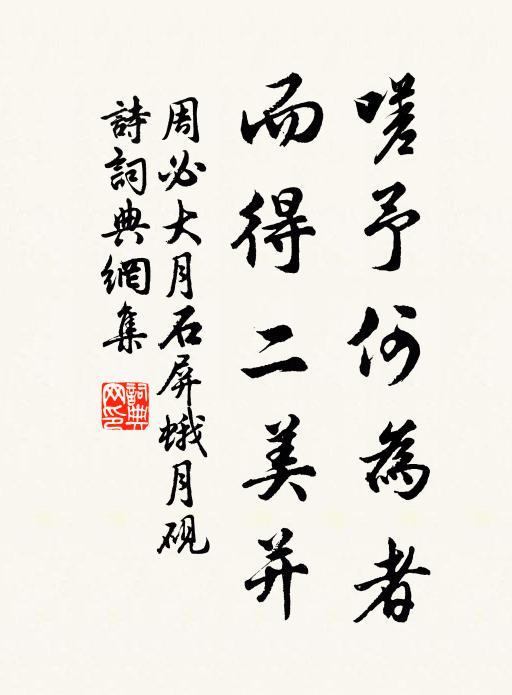 嗟予何為者
而得二美并
周必大月石屏蛾月硯
詩詞典網集
詞典網印